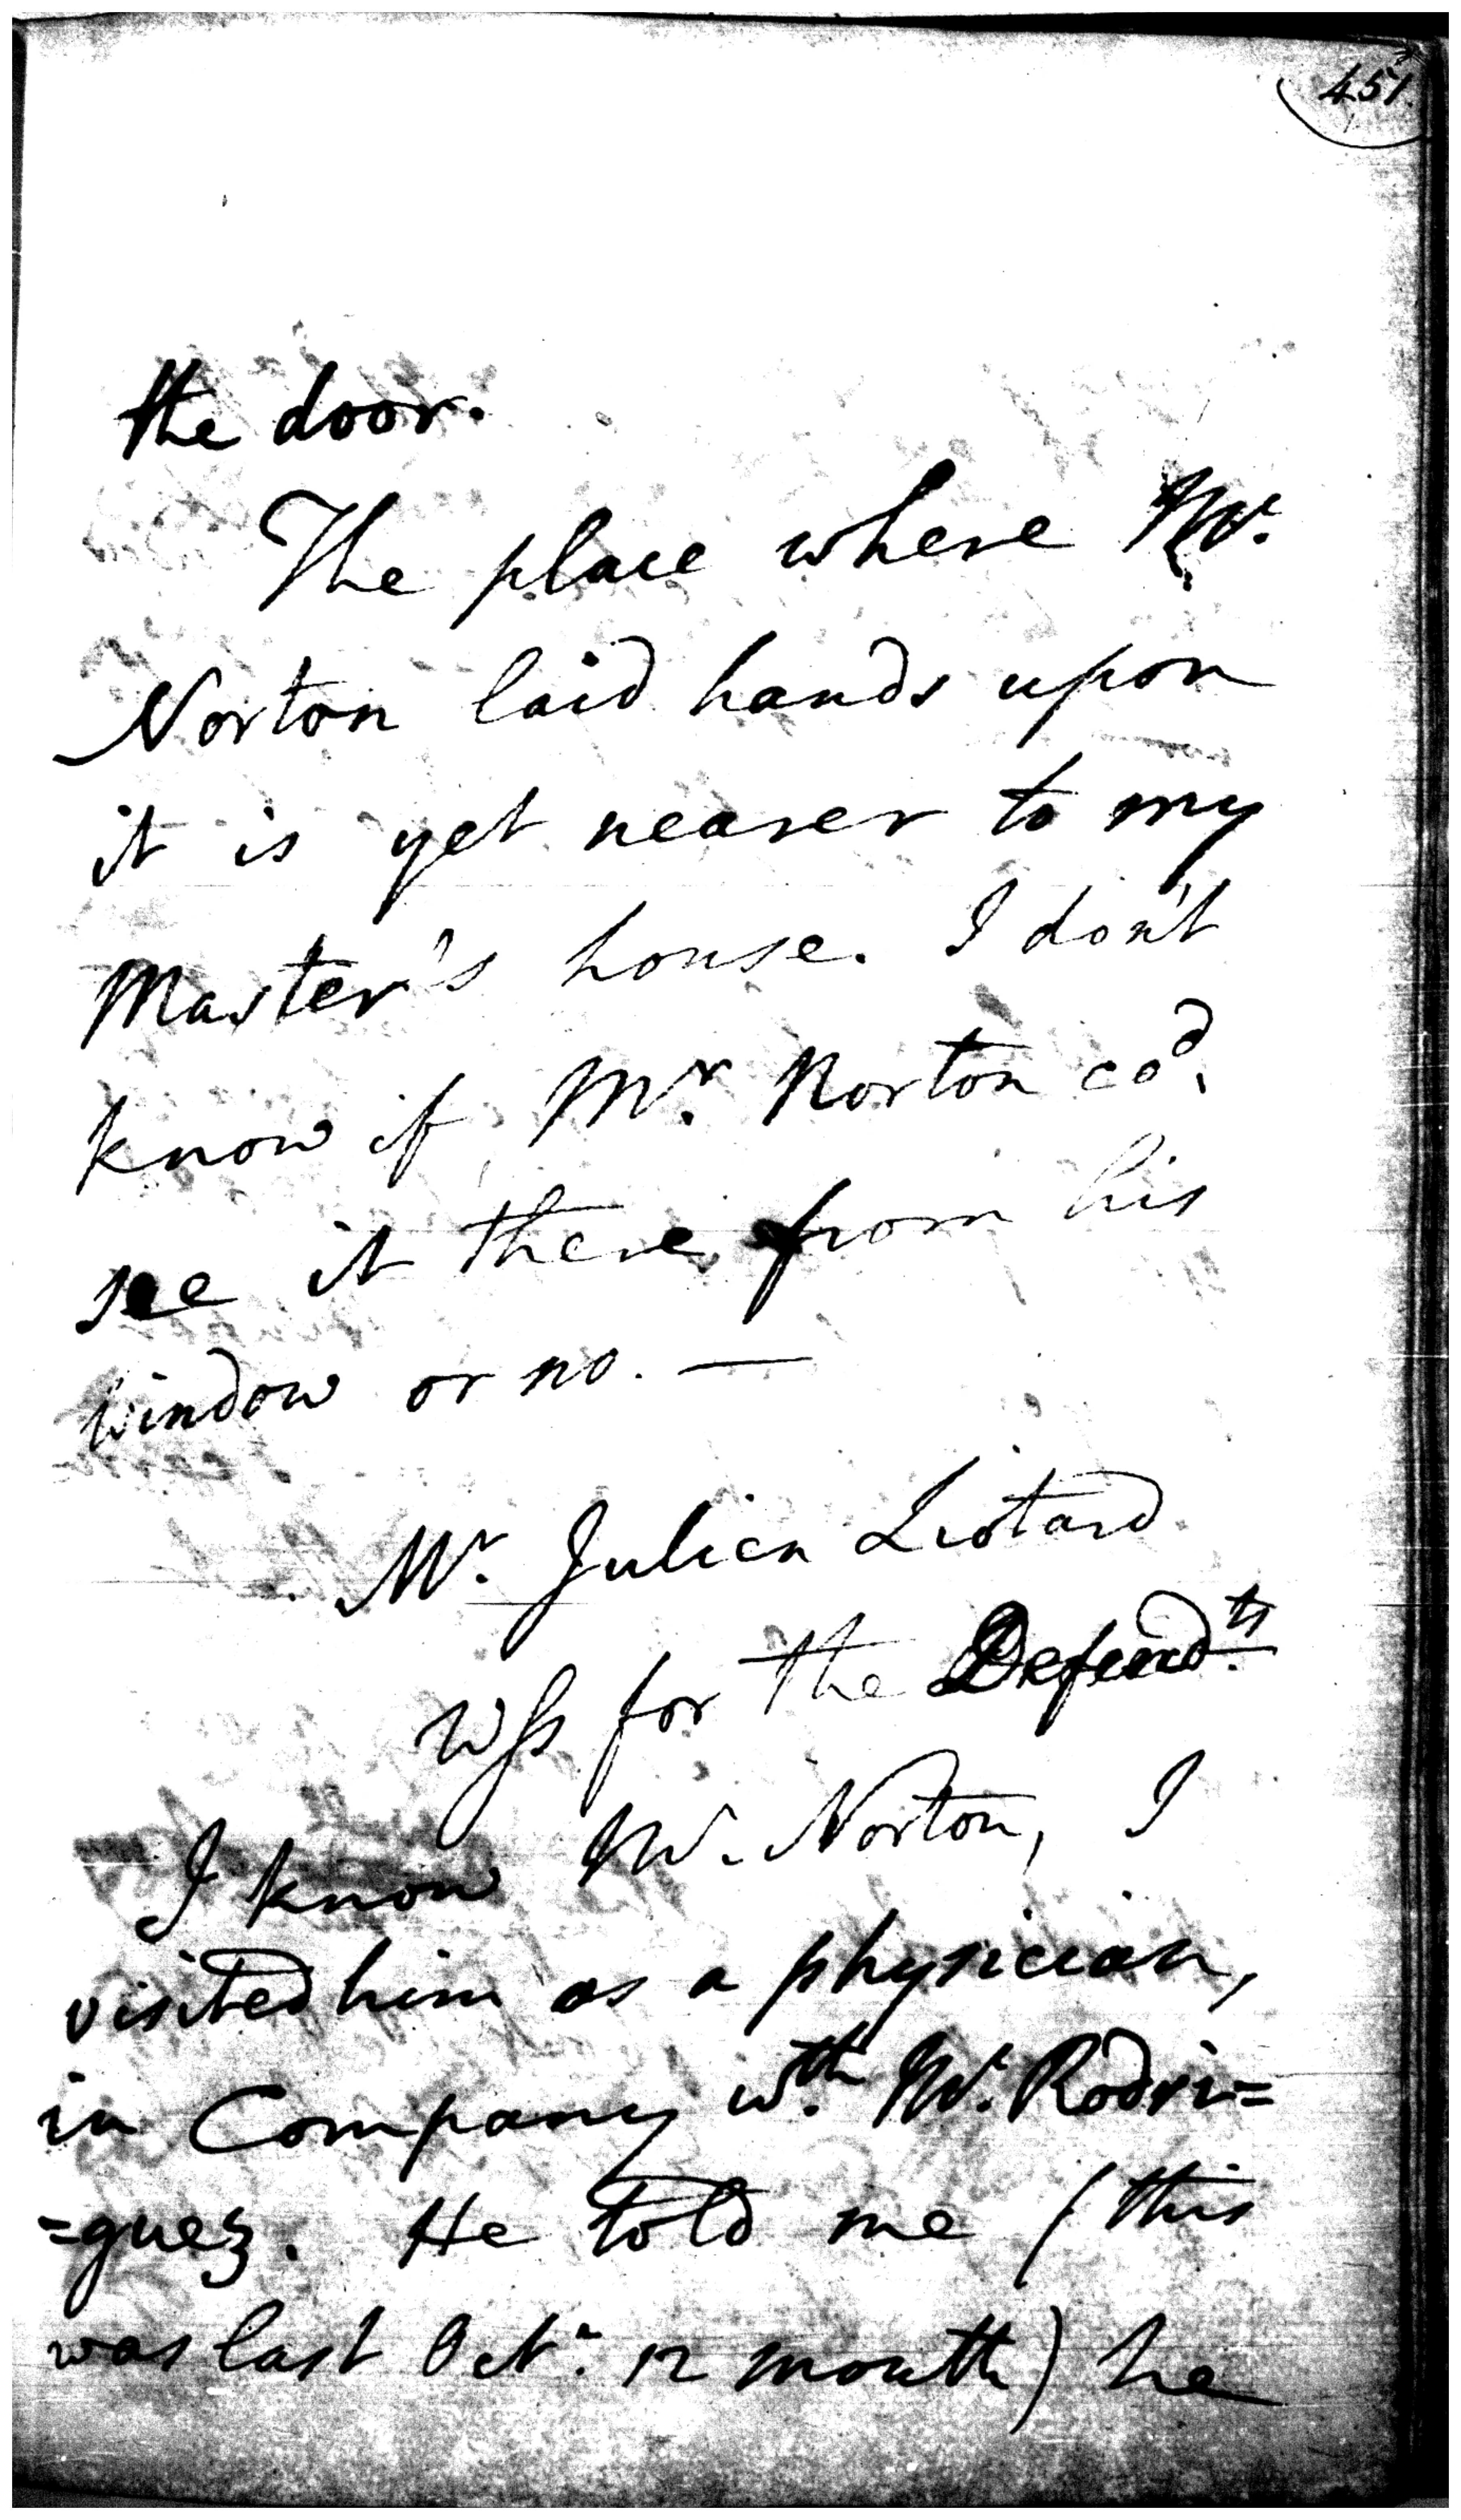 451.
the door.
The place where Mr.
Norton laid hands upon
it is yet nearer to my
Master's house. I don't
know if Mr. Norton cod.
see it there from his
window or no. —
Mr. Julien Liotard
Wss for the Defendts.
I know Mr. Norton, I
visited him as a physician,
in Company wth. Mr. Rodri=
=guez. He told me (this
was last Octr. 12 month) he